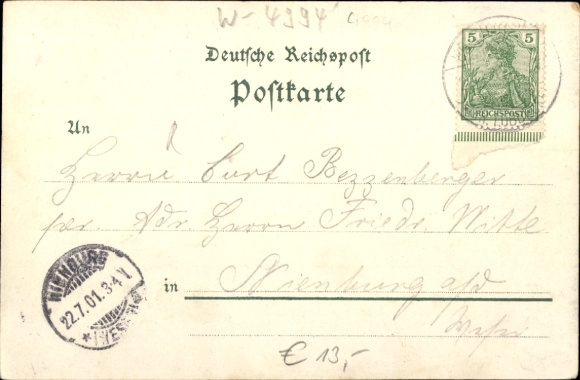 W-4994
Deutsche Reichspost
Postkarte
5 5
REICHSPOST
An
Herrn Curt Bezzenberger
per. Adr. Herrn Friedr. Witte
in Nienburg a/d
Weser
NIENBURG
22.7.01. 3-4 V
*(WESER)
€ 13,-